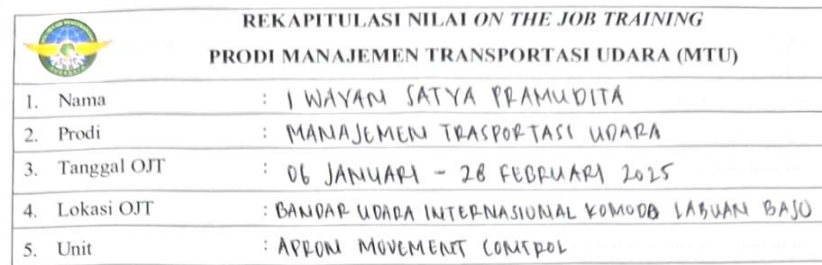 REKAPITULASI NILAI ON THE JOB TRAINING
PRODI MANAJEMEN TRANSPORTASI UDARA (MTU)
1. Nama : I WAYAN SATYA PRAMUDITA
2. Prodi : MANAJEMEN TRASPORTASI UDARA
3. Tanggal OJT : 06 JANUARI - 28 FEBRUARI 2025
4. Lokasi OJT : BANDAR UDARA INTERNASIONAL KOMODO LABUAN BAJO
5. Unit : APRON MOVEMENT CONTROL